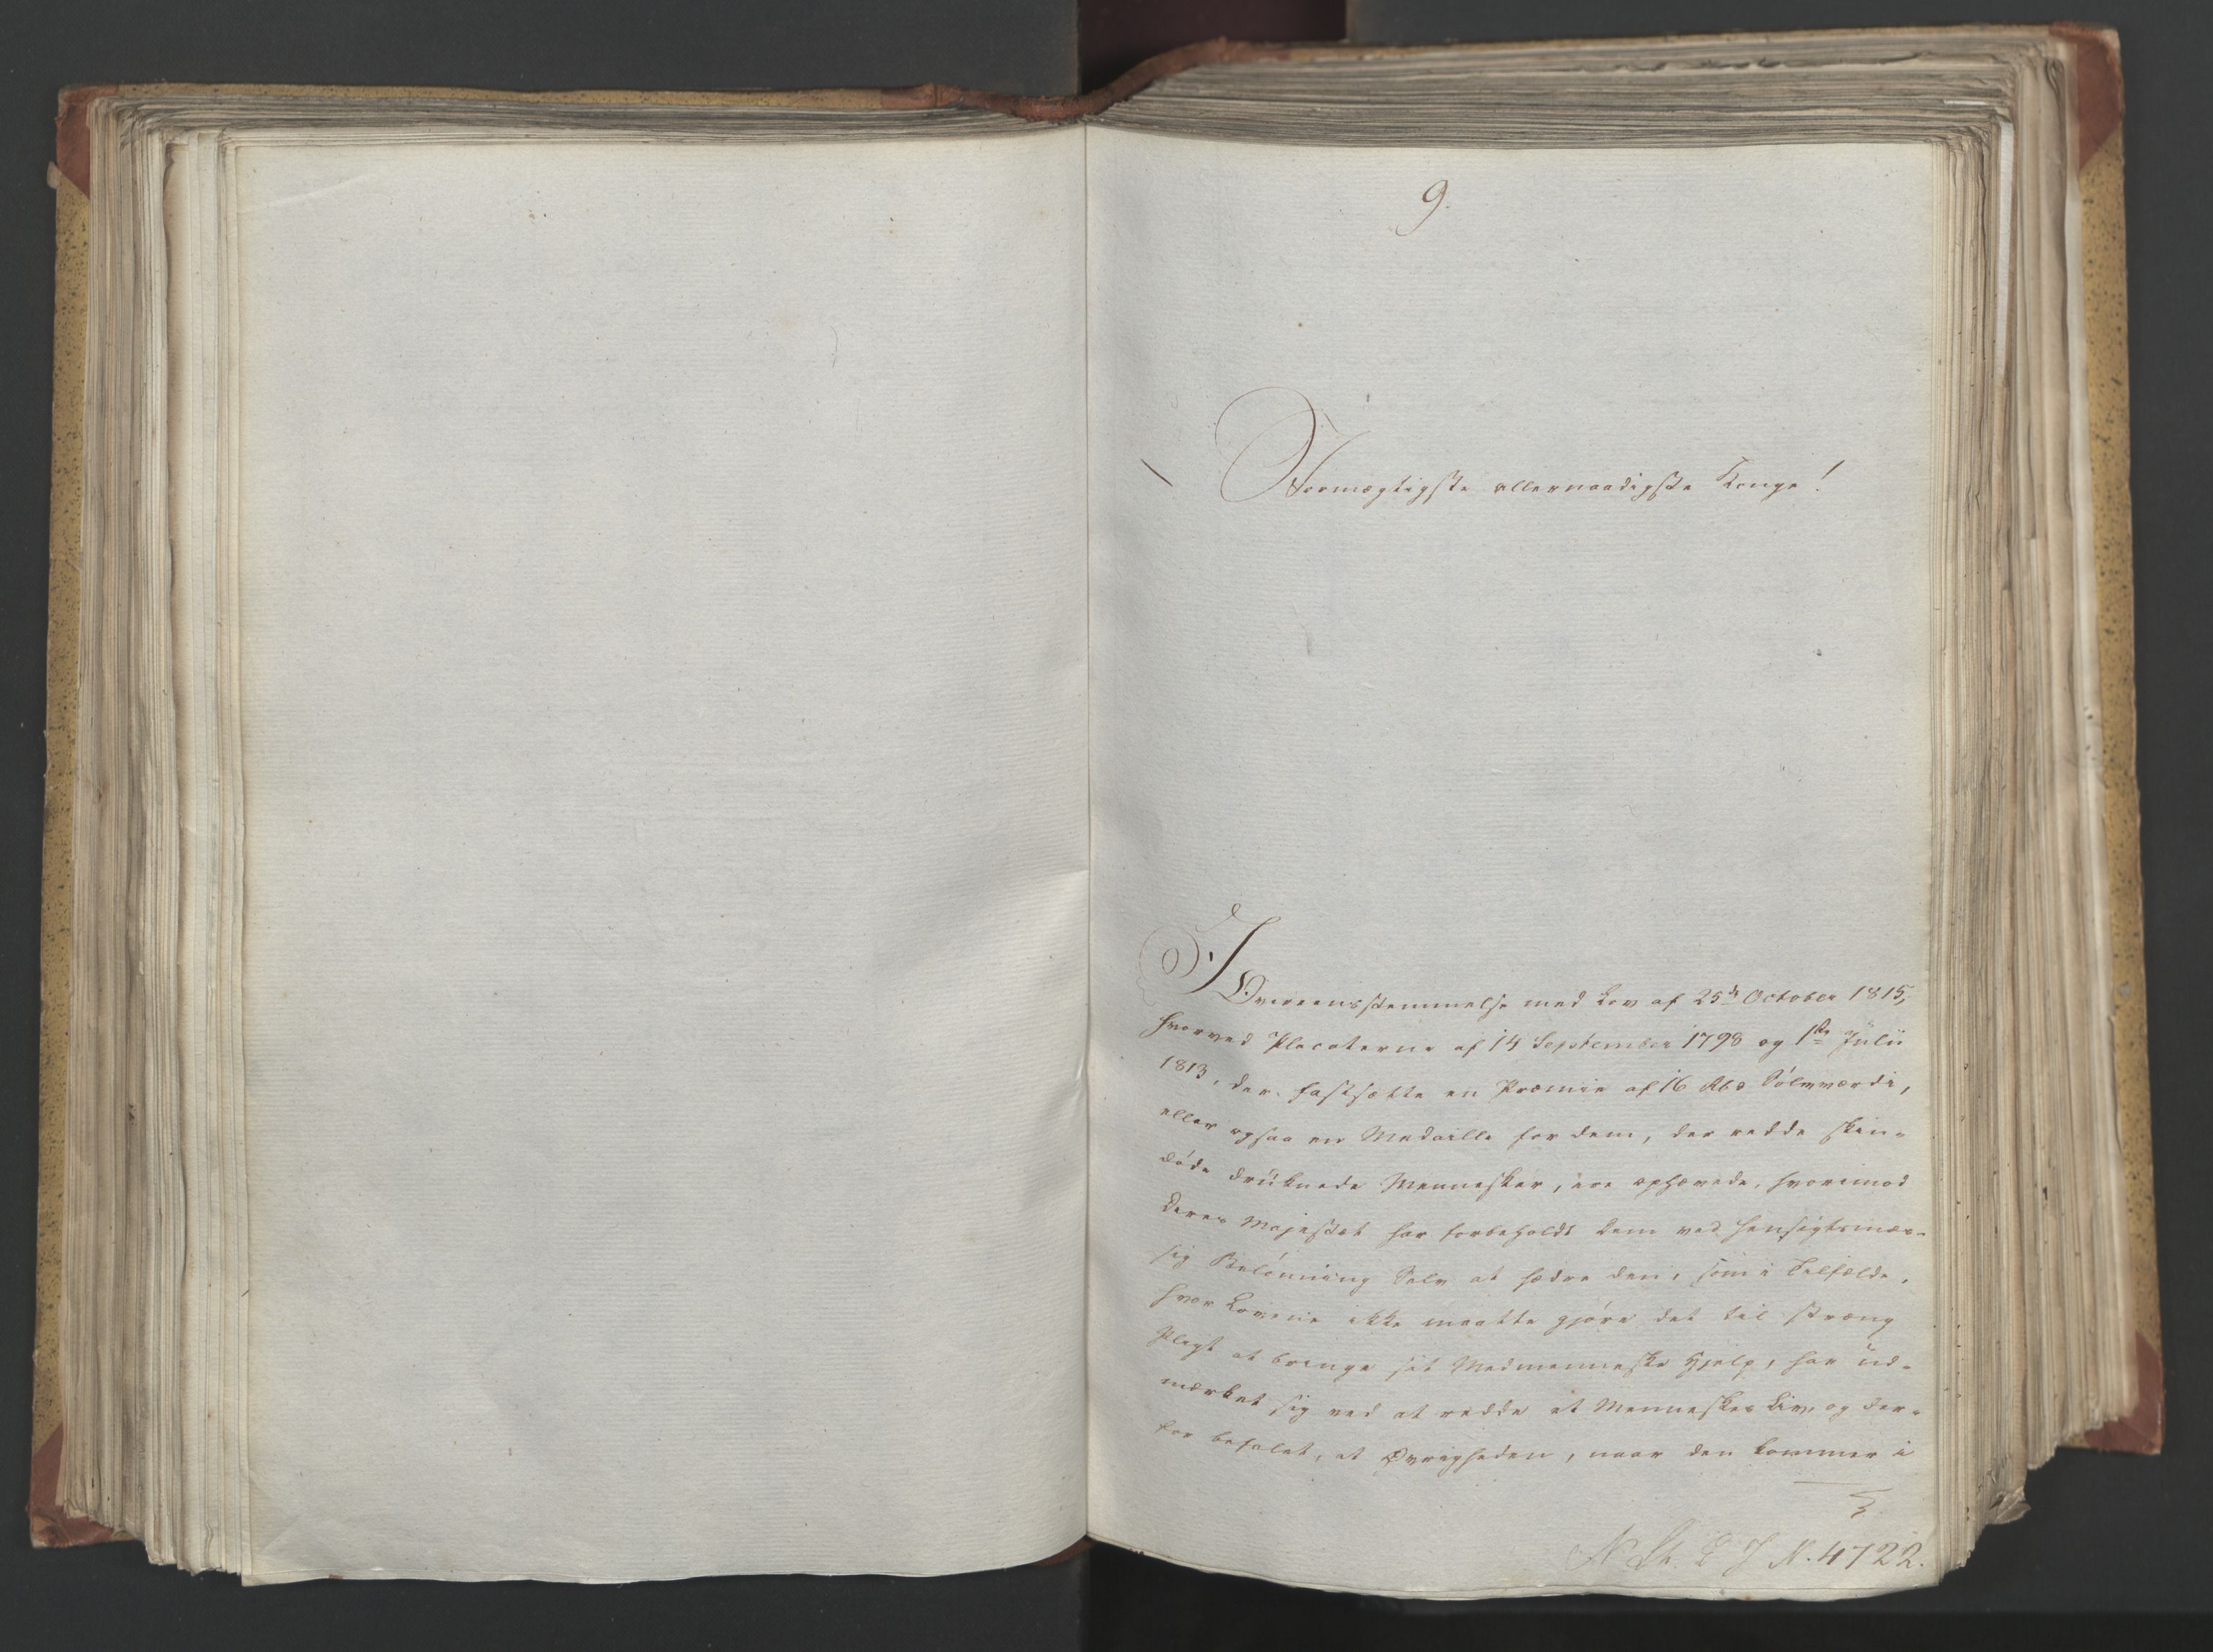 9.
Stormægtigste allernaadigste Konge!
I Overeensstemmelse med Lov af 25de October 1815,
hvorved Placaterne af 14 September 1798 og 1ste Julii
1813, der fastsætte en Præmie af 16 Rbd Sølvværdi,
eller ogsaa en Medaille for dem, der redde skin-
døde druknede Mennesker, ere ophævede, hvorimod
Deres Majestæt har forbeholdt Dem ved hensigtsmæs-
sig Belønning Selv at hædre den, som i Tilfælde,
hvor Lovene ikke maatte gjøre det til stræng
Pligt at bringe sit Medmenneske Hjelp, har ud-
mærket sig ved at redde et Menneskes Liv, og der-
for befalet, at Øvrigheden, naar den kommer i
N. 4722.